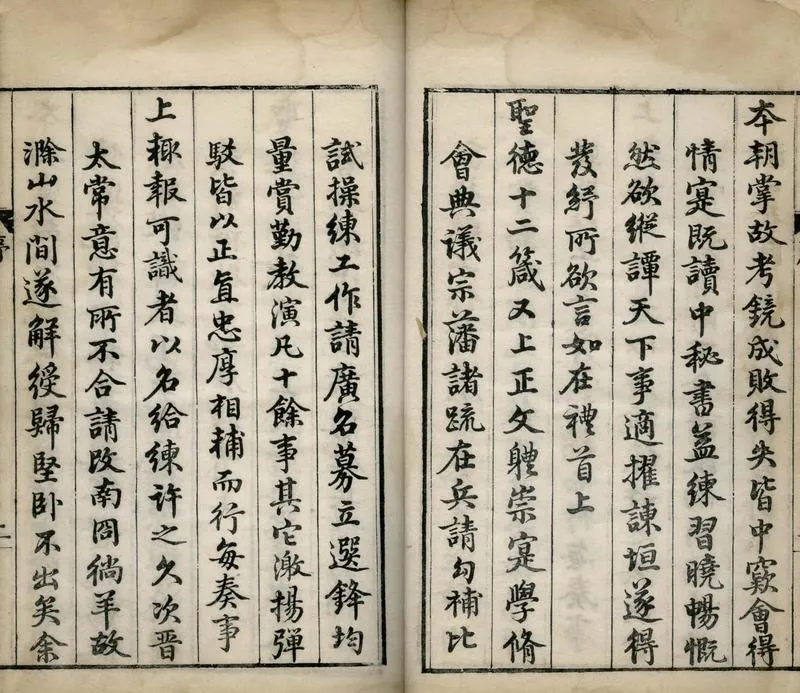 本朝掌故考鏡成敗得失皆中窾會得
情寔既讀中秘書益練習曉暢慨
然欲縱譚天下事適擢諫垣遂得
發紓所欲言如在禮首上
聖德十二箴又上正文體崇寔學脩
會典議宗藩諸疏在兵請勾補比
試操練工作請廣名募立選鋒均
量賞勤教演凡十餘事其它激揚彈
駁皆以正直忠厚相輔而行每奏事
上輙報可識者以名給練許之久次晋
太常意有所不合請改南囧徜羊故
滁山水間遂解綬歸堅卧不出矣余
序
二